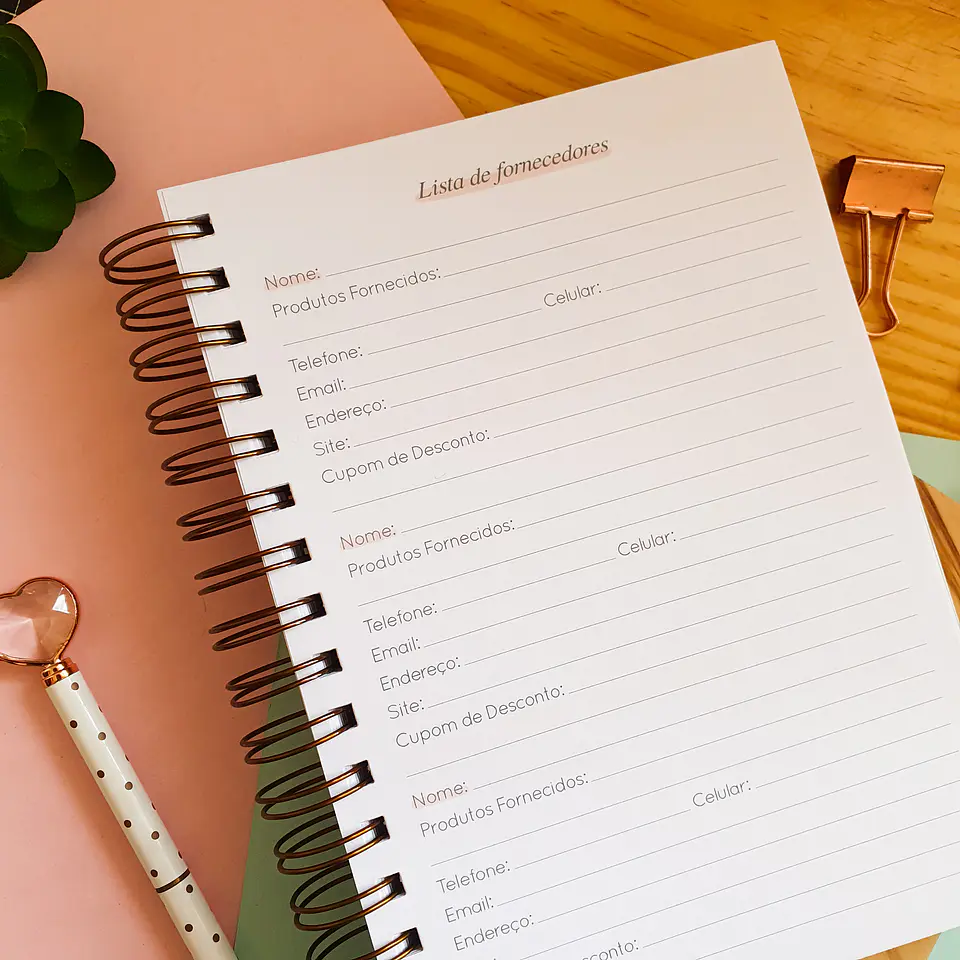 Lista de fornecedores
Nome:
Produtos Fornecidos:
Telefone: Celular:
Email:
Endereço:
Site:
Cupom de Desconto:
Nome:
Produtos Fornecidos:
Telefone: Celular:
Email:
Endereço:
Site:
Cupom de Desconto:
Nome:
Produtos Fornecidos:
Telefone: Celular:
Email:
Endereço: